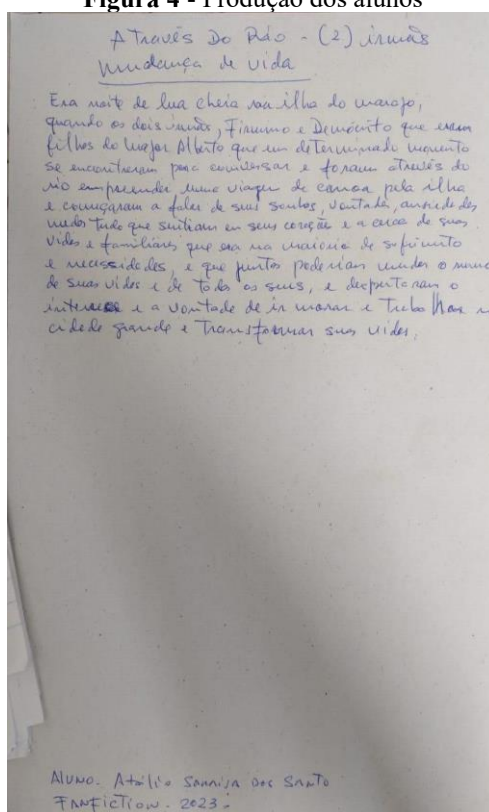 Figura 4 - Produção dos alunos
Através Do Rio - (2) irmãos
mudança de vida
Era noite de lua cheia na ilha do marajo,
quando os dois irmãos, Firmino e Demócrito que eram
filhos do major Alberto que em determinado momento
se encontraram para conversar e foram através do
rio empreender uma viagem de canoa pela ilha
e começaram a falar de seus sonhos, vontades, ansiedades
medos tudo que sentiam em seus coração e a cerca de suas
vidas e familiares que era na maioria de sofrimento
e necessidades, e que juntos poderiam mudar o rumo
de suas vidas e de todos os seus, e despertaram o
interesse e a vontade de ir morar e trabalhar n
cidade grande e transformar suas vidas,
Aluno. Atailio dos Santo
FANFICTION. 2023.